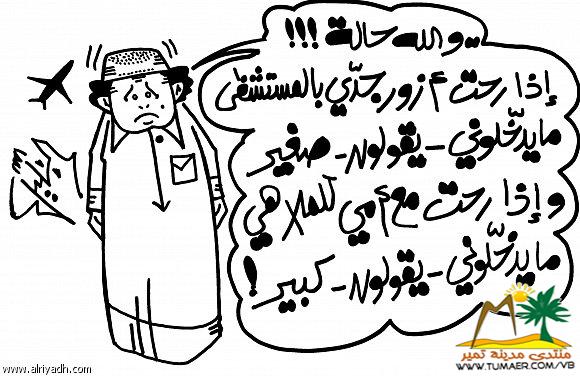 ..والله حالة !!!
إذا رحت أزور جدّي بالمستشفى
مايدخّلوني - يقولون - صغير
وإذا رحت مع أمي للملاهي
مايدخّلوني - يقولون - كبير !
منتدى مدينة تمير
WWW.TUMAER.COM/VB
www.alriyadh.com